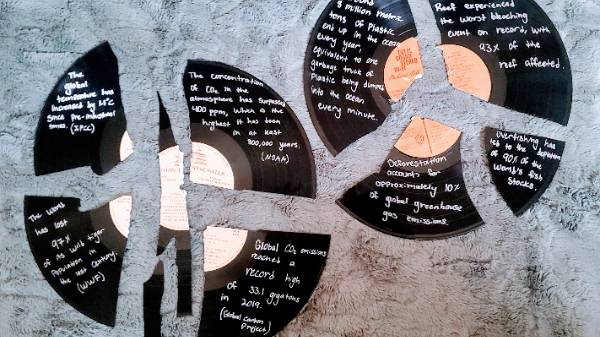 The
global
temperature has
increased by
since Pre-industrial
times. (IPCC)
The concentration
of CO₂ in the
atmosphere has surpassed
400 ppm, which is the
highest it has been
in at least
800,000 years.
(NOAA)
The world
has lost
97%
of its wild tiger
Population in
the last century.
(WWF)
Global CO₂ emissions
reached a
record high
of 33.1 gigatons
in 2019.
(Global Carbon
Project)
8 million metric
tons of Plastic
end up in the ocean
every year,
equivalent to one
garbage truck of
Plastic being dumped
into the ocean
every minute.
Reef experienced
the worst bleaching
event on record, with
93% of the
reef affected.
Deforestation
accounts for
approximately 10%
of global greenhouse
gas emissions
Overfishing has
led to the depletion
of 90% of the
World's fish
Stocks.